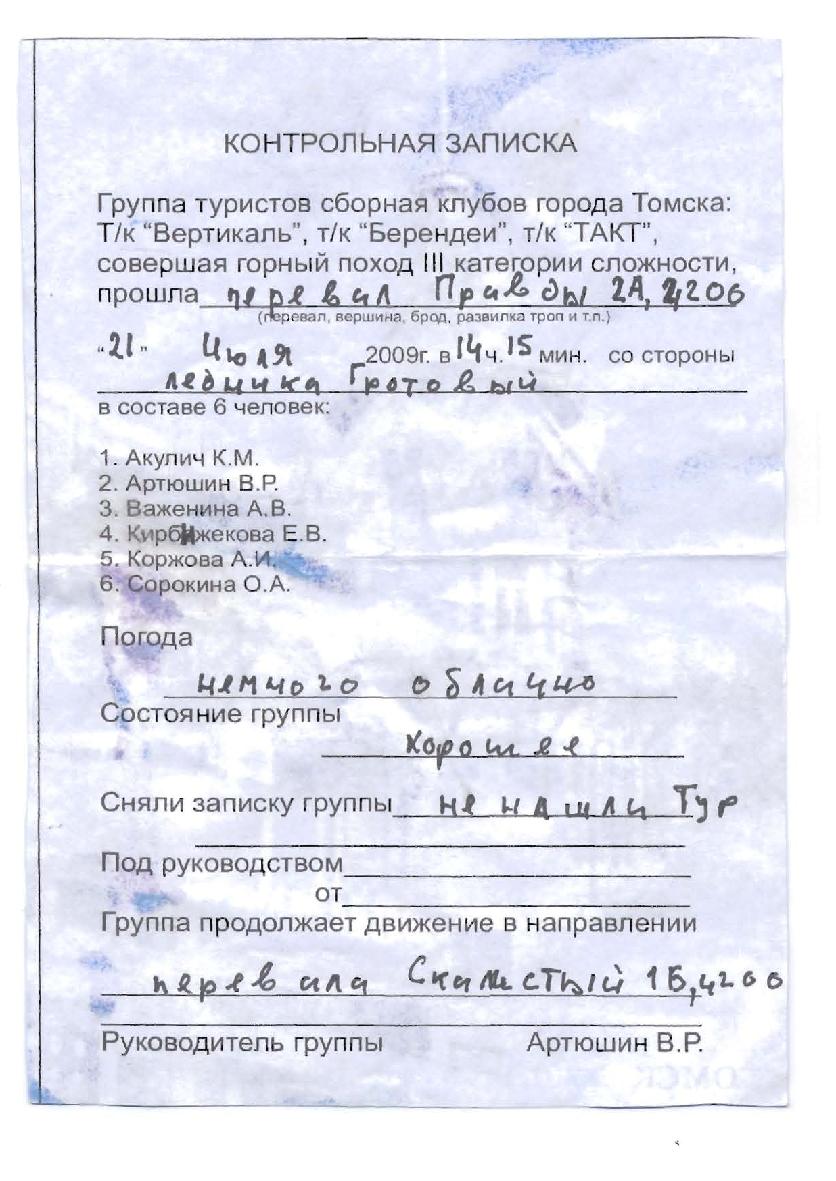 КОНТРОЛЬНАЯ ЗАПИСКА
Группа туристов сборная клубов города Томска:
Т/к “Вертикаль”, т/к “Берендеи”, т/к “ТАКТ”,
совершая горный поход III категории сложности,
прошла перевал Правды 2А, 4200
(перевал, вершина, брод, развилка троп и т.п.)
“21” Июля 2009г. в 14 ч. 15 мин. со стороны
ледника Гротовый
в составе 6 человек:
1. Акулич К.М.
2. Артюшин В.Р.
3. Важенина А.В.
4. Кирбижекова Е.В.
5. Коржова А.И.
6. Сорокина О.А.
Погода
немного облачно
Состояние группы
хорошее
Сняли записку группы не нашли Тур
Под руководством
от
Группа продолжает движение в направлении
перевала Скалистый 1Б, 4200
Руководитель группы Артюшин В.Р.